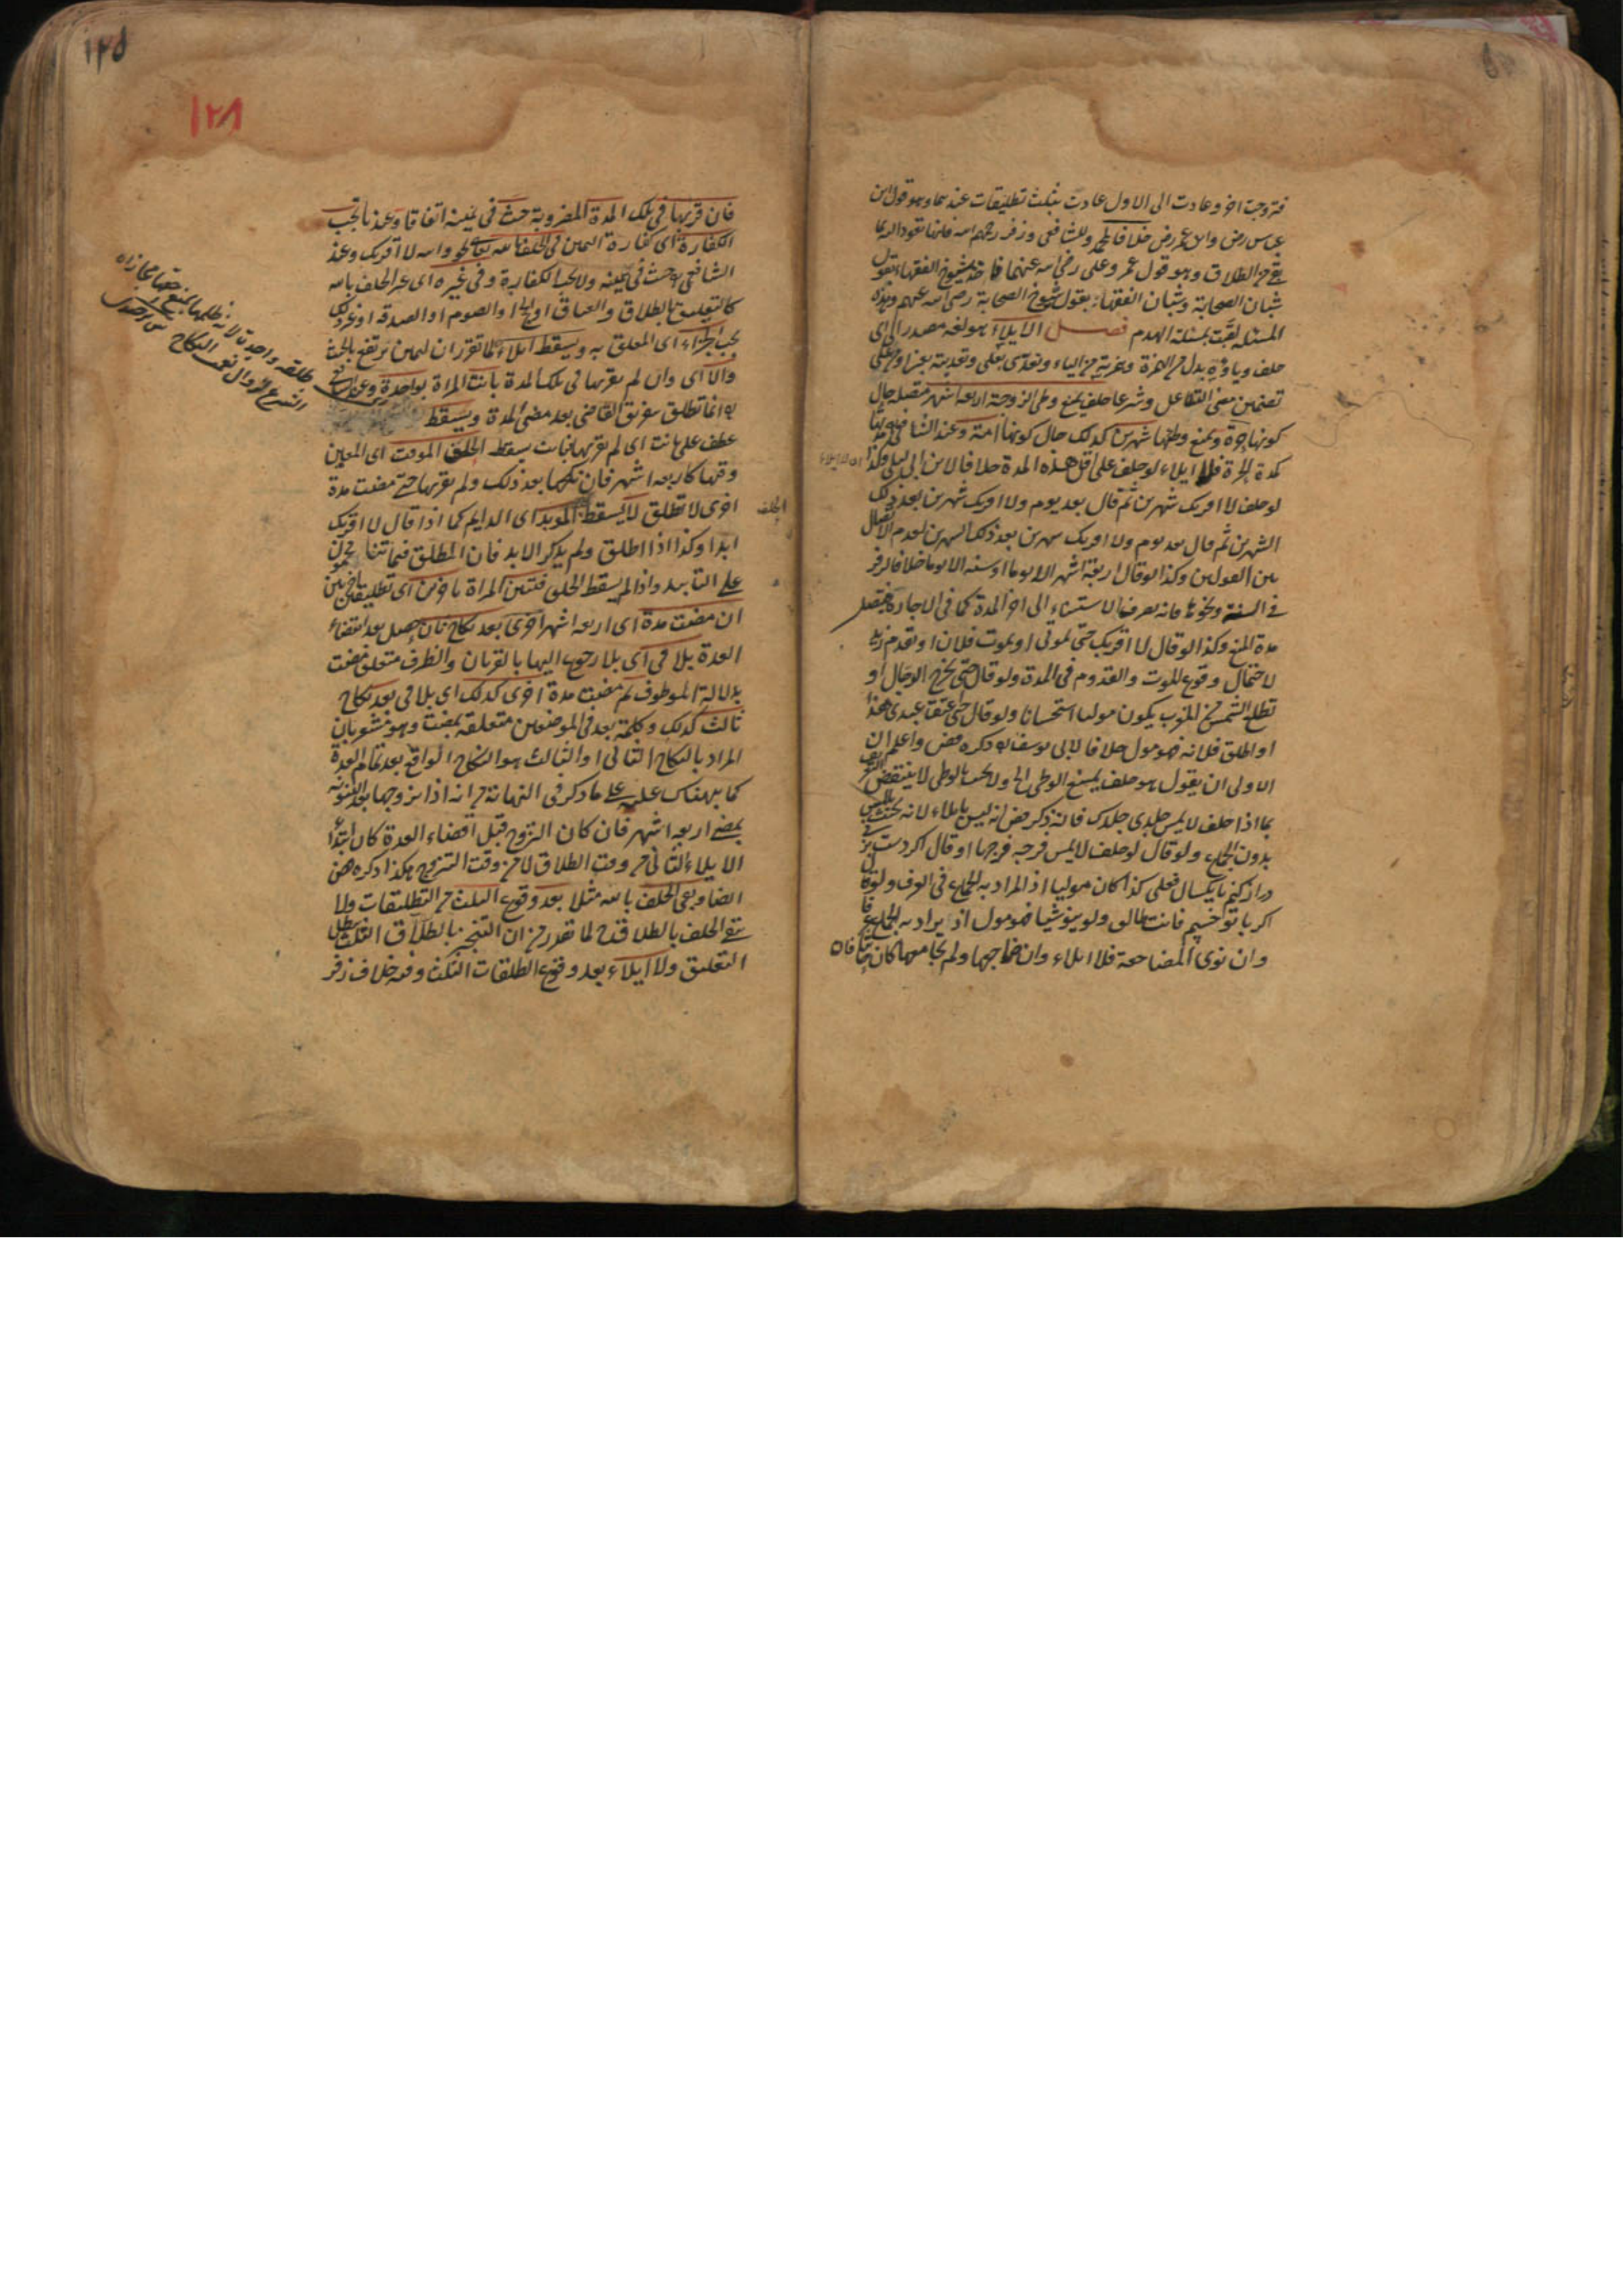 فتزوجت آخر وعادت الى الاول عادت بثلث تطليقات عندهما وهو قول ابن
عباس رض وابن عمر رض خلافا لمحمد وللشافعي وزفر رحمهم الله فانها تعود اليه بما
بقي من الطلاق وهو قول عمر وعلي رضي الله عنهما فاخذ شيوخ الفقهاء بقول
شبان الصحابة وشبان الفقهاء بقول شيوخ الصحابة رضي الله عنهم وهذه
المسئلة لقبت بمسئلة الهدم فصل الايلاء هو لغة مصدر آلى اى
حلف وياؤه بدل من الهمزة وتعدى بعلى وتعديته بمن او على
تضمين معنى التباعد وشرعا حلف يمنع وطى الزوجة اربعة اشهر متصلة حال
كونها حرة ويمنع وطئها شهرين كذلك حال كونها امة وعند الشافعي مدتها
كمدة الحرة فلا ايلاء لو حلف على اقل هذه المدة خلافا لابن ابى ليلى ولذا
لو حلف لا اقربك شهرين ثم قال بعد يوم ولا اقربك شهرين بعد ذلك
الشهرين ثم قال بعد يوم ولا اقربك شهرين بعد ذلك الشهرين لعدم الاتصال
بين القولين وكذا لو قال اربعة اشهر الا يوما او سنة الا يوما خلافا لزفر
في السنة ونحوها فانه يصرف الاستثناء الى آخر المدة كما في الاجارة
مدة المنع وكذا لو قال لا اقربك حتى تموتى او يموت فلان او يقدم زيد
لاحتمال وقوع الموت والقدوم في المدة ولو قال حتى يخرج الدجال او
تطلع الشمس من المغرب يكون موليا استحسانا ولو قال حتى عتق عبدى هذا
او اطلق فلانة فهو مول خلافا لابى يوسف ره ذكره قض واعلم ان
الاولى ان يقول هو حلف يمنع الوطى الخ ولا يحنث الا بالوطى لا ينتقض
بما اذا حلف لا يمس جلدى جلدك فانه ذكر قض انه ليس بايلاء لانه يحنث باللمس
بدون الجماع ولو قال لو حلف لا يمس فرجه فرجها او قال اكر دست
دراز كنم تا يكسال فعلى كذا كان موليا اذ المراد به الجماع في العرف ولو قال
اكر با تو خسبم فانت طالق ولو ينو شيئا فهو مول اذ يراد به الجماع
وان نوى المضاجعة فلا ايلاء وان ضاجعها ولم يجامعها كان حانثا فان
فان قربها في تلك المدة المضروبة حنث في يمينه اتفاقا وعندنا تجب
الكفارة اى كفارة اليمين في الحلف بالله تعالى نحو والله لا اقربك وعند
الشافعي ره حنث في يمينه ولا تجب الكفارة وفي غيره اى غير الحلف بالله
كالتعليق بالطلاق والعتاق او الحج او الصوم او الصدقة او نحو ذلك
يجب الجزاء اى المعلق به ويسقط ايلاء لما تقرر ان اليمين يرتفع بالحنث
والا اى وان لم يقربها في تلك المدة بانت المراة بواحدة وعند الشافعي
ره انما تطلق بتفريق القاضي بعد مضى المدة ويسقط
عطف على بانت اى لم يقربها فبانت سقط الحلف الموقت اى المعين
وقتها كاربعة اشهر فان نكحها بعد ذلك ولم يقربها حتى مضت مدة
اخرى لا تطلق لا يسقط المؤبد اى الدايم كما اذا قال لا اقربك
الحلف
ابدا وكذا اذا اطلق ولم يذكر الابد فان المطلق
على التابيد واذا لم يسقط الحلف فتبين المراة باخرى اى تطليقة
ان مضت مدة اى اربعة اشهر اخرى بعد نكاح ثان حصل بعد انقضاء
العدة بلا فئ اى بلا رجوع اليها بالقربان والظرف متعلق بمضت
بدلالة المعطوف ثم مضت مدة اخرى كذلك اى بلا فئ بعد نكاح
ثالث كذلك وكلمة بعد في الموضعين متعلقة بمضت وهو مشعر بان
المراد بالنكاح الثاني او الثالث هو النكاح الواقع بعد تمام العدة
كما نبهناك عليه على ما ذكر في النهاية من انه اذا تزوجها بعد البينونة
بمضى اربعة اشهر فان كان التزوج قبل انقضاء العدة كان ابتداء
الايلاء الثاني من وقت الطلاق لا من وقت التزوج هكذا ذكره
ايضا وبقى الحلف بالله مثلا بعد وقوع الثلث من التطليقات ولا
بقى الحلف بالطلاق لما تقرر من ان التنجيز بالطلاق الثلث يبطل
التعليق ولا ايلاء بعد وقوع الطلقات الثلث وفيه خلاف زفر
طلقة واحدة لانه ظلمها بمنع حقها فجازاه
الشرع بزوال نعمة النكاح
١٢٨
١٢٥